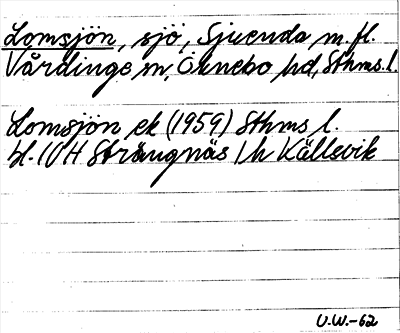 Lomsjön, sjö, Sjuenda m.fl.
Vårdinge sn, Öknebo hd, Sthms l.
Lomsjön ek (1959) Sthms l.
bl. 10 H Strängnäs 1 h Källsvik
U.W.-62